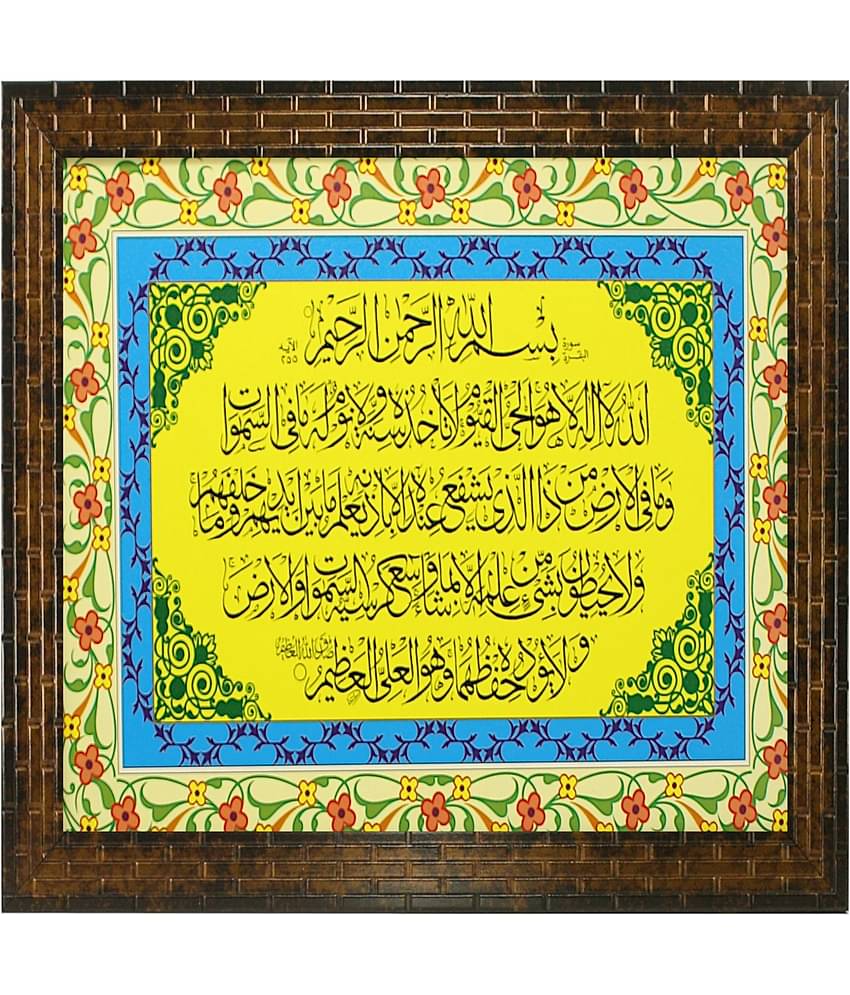 بسم الله الرحمن الرحيم
سورة البقرة
الآيه ٢٥٥
الله لا اله الا هو الحي القيوم لا تأخذه سنة ولا نوم له ما في السموات
وما في الارض من ذا الذي يشفع عنده الا باذنه يعلم ما بين ايديهم وما خلفهم
ولا يحيطون بشيء من علمه الا بما شاء وسع كرسيه السموات والارض
ولا يؤده حفظهما وهو العلي العظيم
صدق الله العظيم